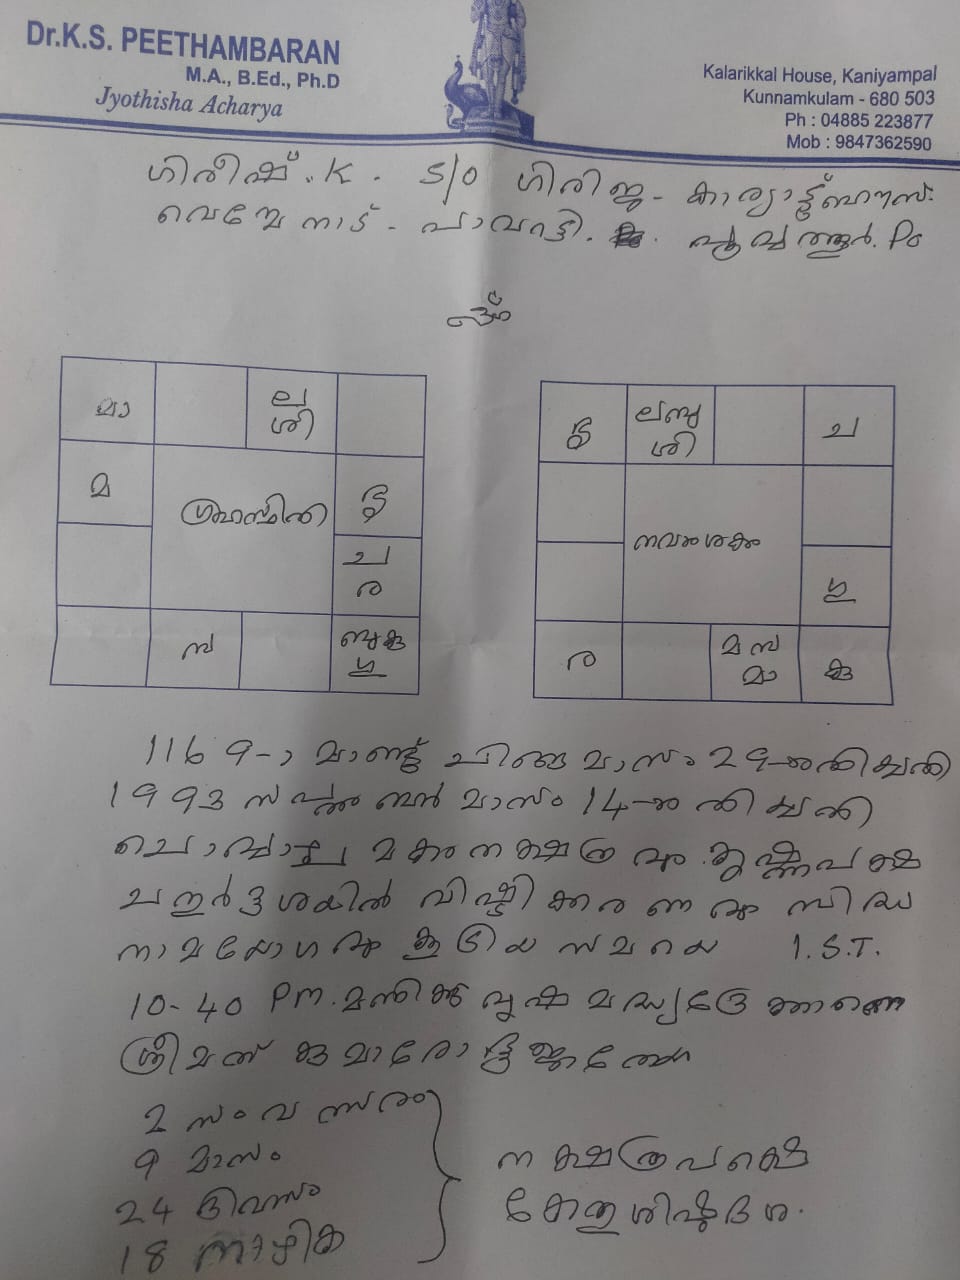 Dr.K.S. PEETHAMBARAN
M.A., B.Ed., Ph.D
Jyothisha Acharya
Kalarikkal House, Kaniyampal
Kunnamkulam - 680 503
Ph : 04885 223877
Mob : 9847362590
ഗിരീഷ്. K. S/O ഗിരിജ - കാര്യാട്ട് ഹൗസ്.
വെമ്പേനാട് - പാവറട്ടി. PO
മാ
ല
ശി
മ
ഗ്രഹസ്ഥിതി
ച
ര
സ
ബുകു
ഗു
ലബു
ശി
ച
നവാംശകം
ഗു
ര
മസ
മാ
കു
1169-ാ മാണ്ട് ചിങ്ങമാസം 29-ാംതിയ്യതി
1993 സപ്തംബർ മാസം 14-ാം തിയ്യതി
ചൊവ്വാഴ്ച മകംനക്ഷത്രവും കൃഷ്ണപക്ഷ
ചതുർദ്ദശയിൽ വിഷ്ടിക്കരണവും സിദ്ധ
നാമയോഗവും കൂടിയ സമയെ I.S.T.
10-40 Pm. മണിക്കു വൃഷമദ്ധ്യദ്രേക്കാണെ
ശ്രീമത് കുമാരോ
2 സംവത്സരം
9 മാസം
24 ദിവസം
18 നാഴിക
നക്ഷത്രപക്ഷെ
കേതുശിഷ്ടദശ.